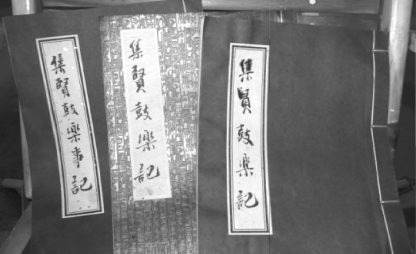 集賢鼓樂事記
集賢鼓樂記
集賢鼓樂記